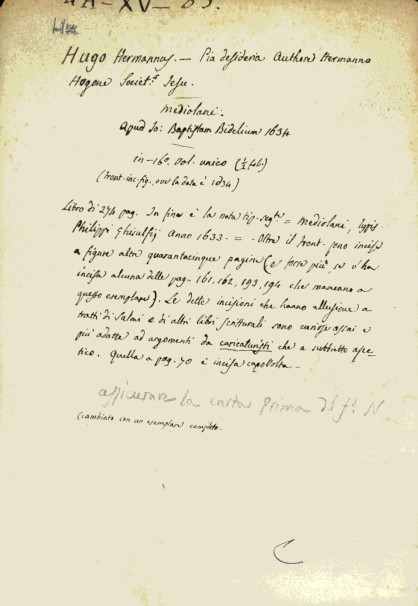 4A-XV-85.
Hugo Hermannus. — Pia desideria Authore Hermanno
Hugone Societ.s Jesu.
Mediolani.
Apud Jo: Baptistam Bidelium 1634
in-16º. vol. unico (½ fol.)
(front. inc. fig., ove la data è 1634)
Libro di 274 pag. In fine è la nota tip. segte = Mediolani, typis
Philippi Ghisulfij Anno 1633. = . Oltre il front. sono incise
a figure altre quarantacinque pagine (e forse più, se v'ha
incisa alcuna delle pag. 161, 162, 193, 194 che mancano a
questo esemplare). Le dette incisioni che hanno allusione a
tratti di Salmi e di altri libri scritturali sono curiose assai e
più adatte ad argomenti da caricaturisti che a subbietto asce-
tico. Quella a pag. 70 è incisa capovolta —
assicurare la carta prima del f.º N
(cambiato con un esemplare completo.